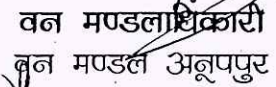 वन मण्डलाधिकारी
वन मण्डल अनूपपुर